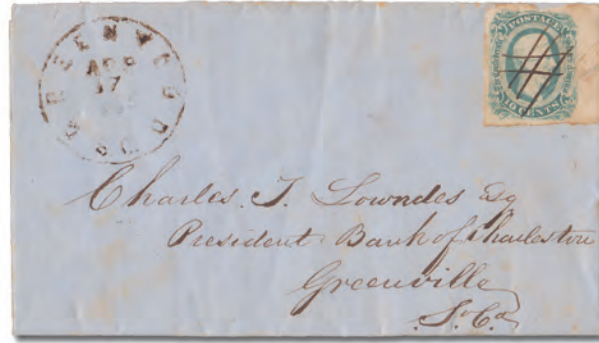 GREENWOOD
APR
17
S.C.
POSTAGE
10 CENTS
Charles. T. Lowndes Esq
President Bank of Charleston
Greenville
S. Ca